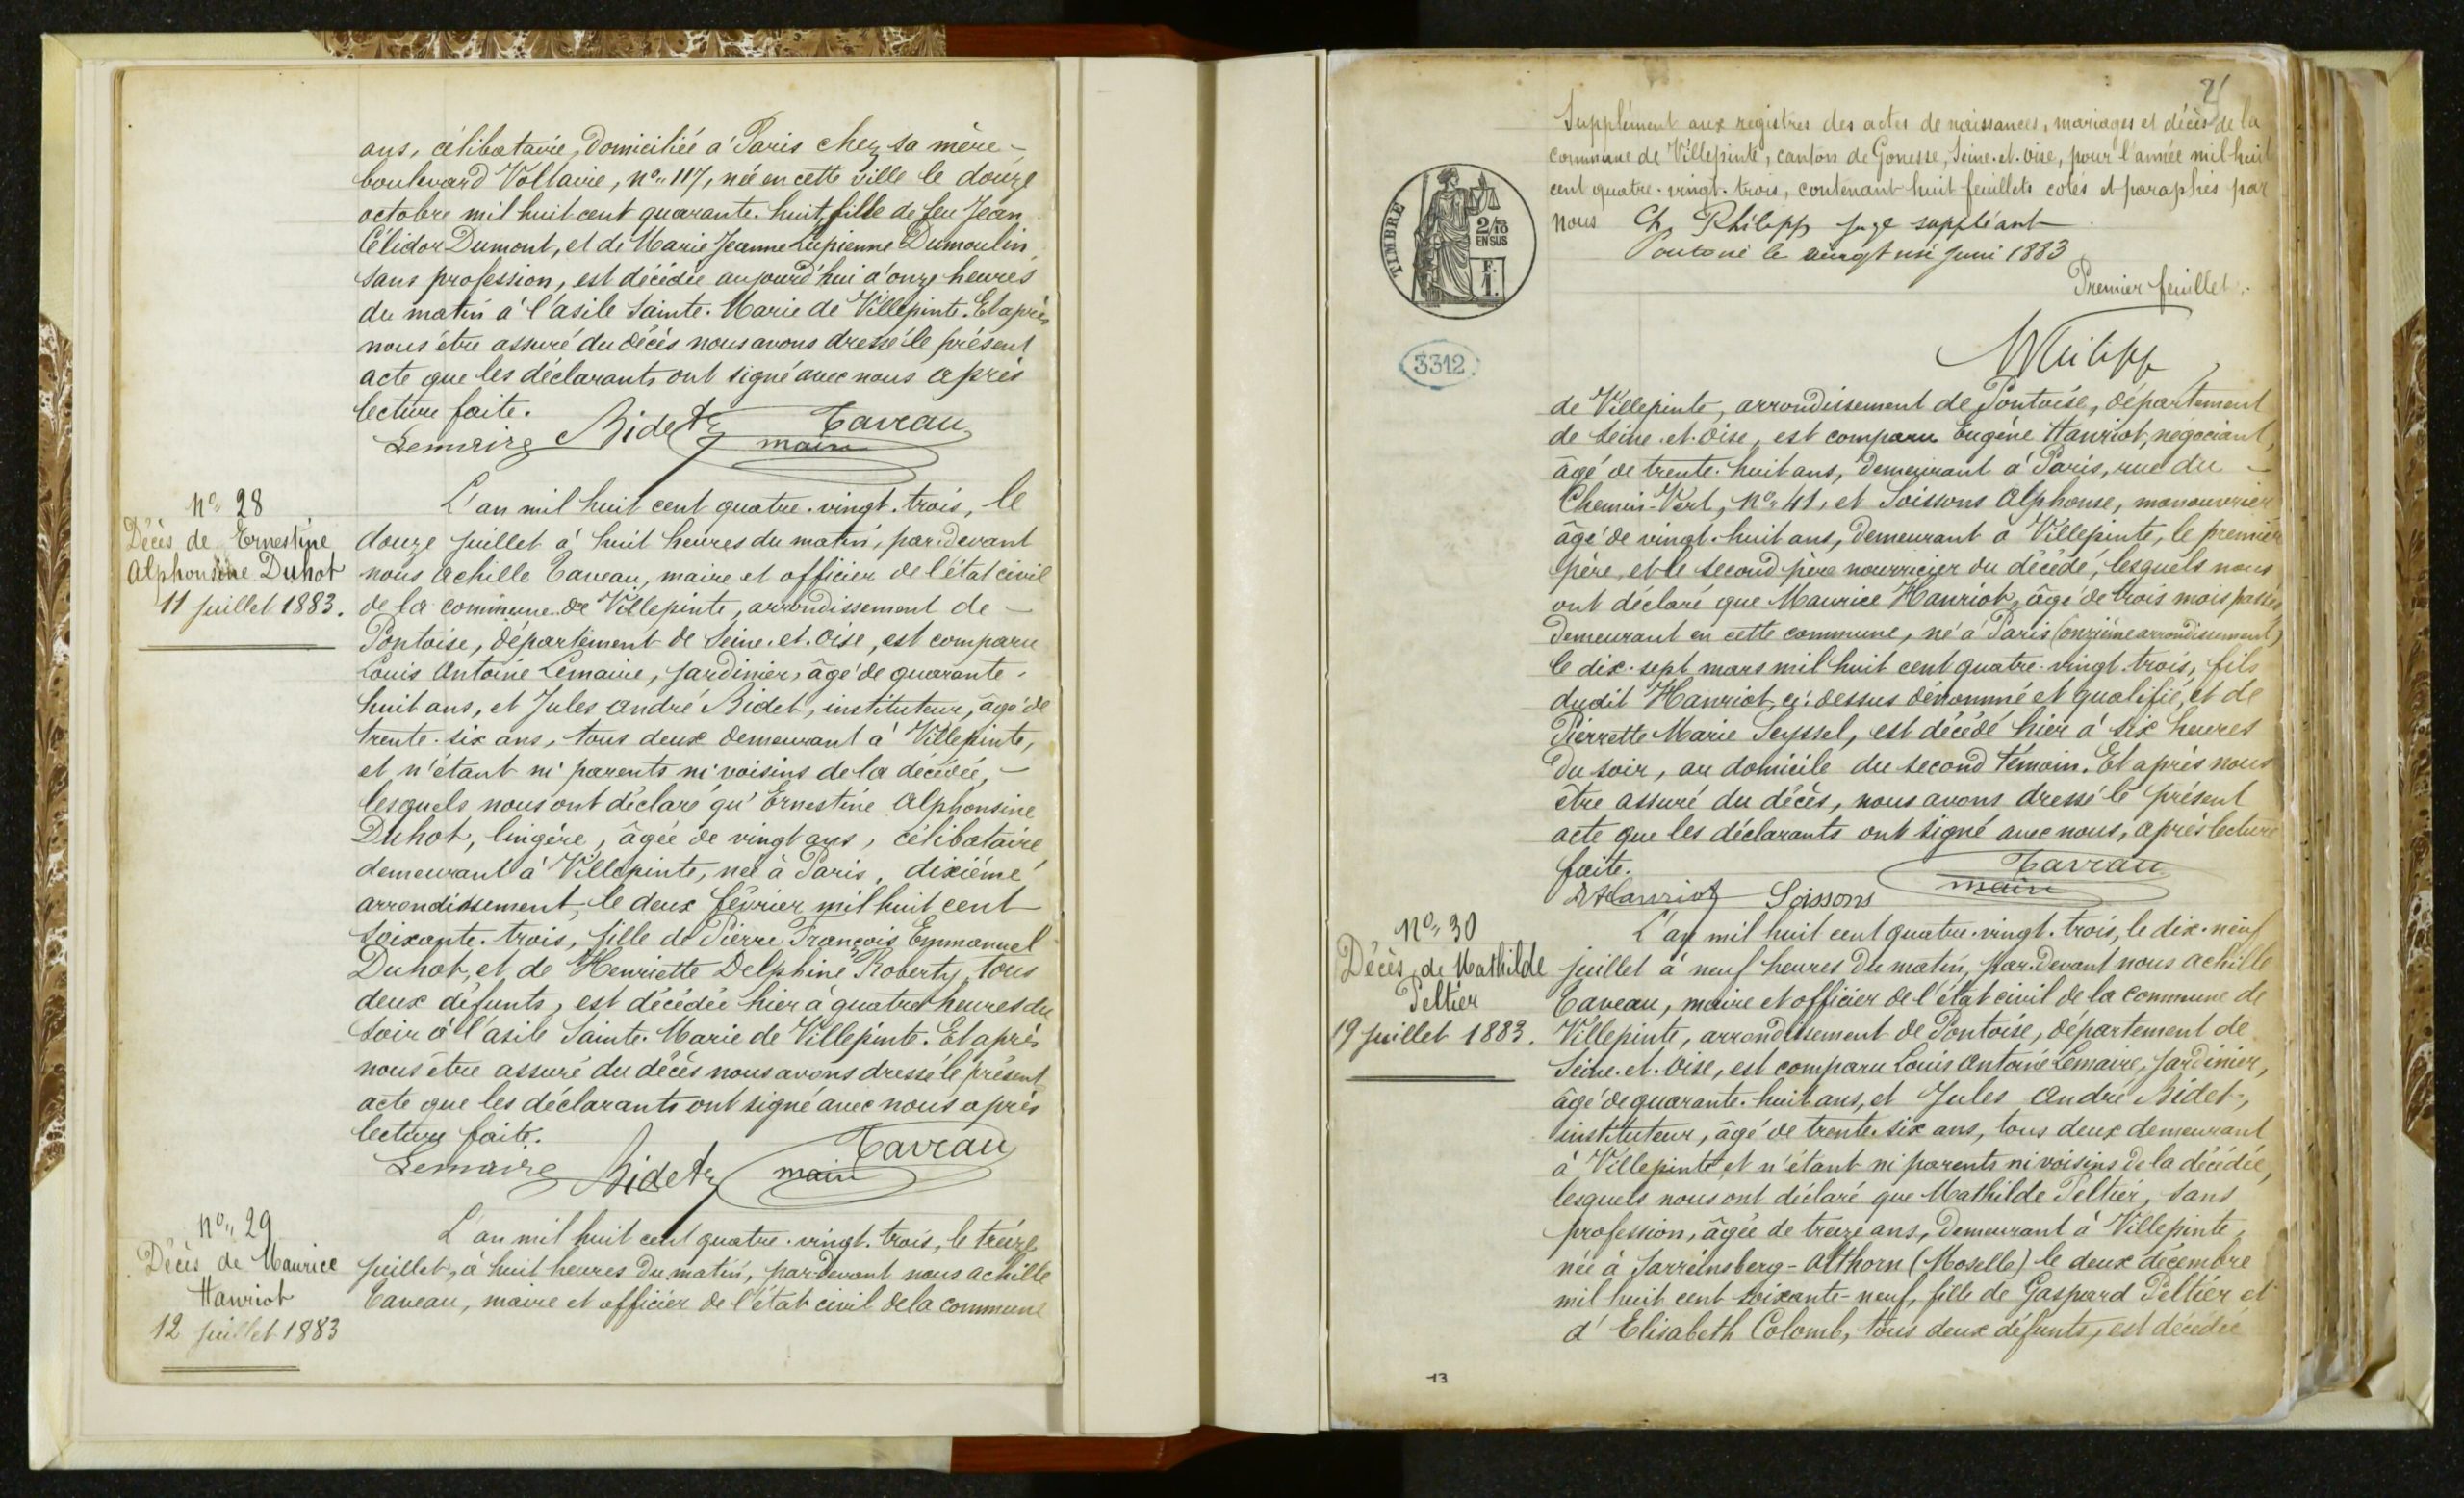 ans, célibataire, domiciliée à Paris chez sa mère –
boulevard Voltaire, n° 117, née en cette ville le douze
octobre mil huit cent quarante-huit, fille de feu Jean
Célidor Dumont, et de Marie Jeanne Lupienne Dumoulin,
sans profession, est décédée aujourd'hui à onze heures
du matin à l'asile Sainte-Marie de Villepinte. Et après
nous être assuré du décès nous avons dressé le présent
acte que les déclarants ont signé avec nous après
lecture faite.
Lemaire Bidet Taveau
maire
N° 28
Décès de Ernestine
Alphonsine Duhot
11 juillet 1883.
L'an mil huit cent quatre-vingt-trois, le
douze juillet à huit heures du matin, par-devant
nous Achille Taveau, maire et officier de l'état civil
de la commune de Villepinte, arrondissement de –
Pontoise, département de Seine-et-Oise, est comparu
Louis Antoine Lemaire, jardinier, âgé de quarante-
huit ans, et Jules André Bidet, instituteur, âgé de
trente-six ans, tous deux demeurant à Villepinte,
et n'étant ni parents ni voisins de la décédée, –
lesquels nous ont déclaré qu'Ernestine Alphonsine
Duhot, lingère, âgée de vingt ans, célibataire,
demeurant à Villepinte, née à Paris, dixième
arrondissement, le deux février mil huit cent
soixante-trois, fille de Pierre François Emmanuel
Duhot, et de Henriette Delphine Roberty, tous
deux défunts, est décédée hier à quatre heures du
soir à l'asile Sainte-Marie de Villepinte. Et après
nous être assuré du décès nous avons dressé le présent
acte que les déclarants ont signé avec nous après
lecture faite.
Lemaire Bidet Taveau
maire
N° 29
Décès de Maurice
Hanriot
12 juillet 1883
L'an mil huit cent quatre-vingt-trois, le treize
juillet, à huit heures du matin, par-devant nous Achille
Taveau, maire et officier de l'état civil de la commune
21
Supplément aux registres des actes de naissances, mariages et décès de la
commune de Villepinte, canton de Gonesse, Seine-et-Oise, pour l'année mil huit
cent quatre-vingt-trois, contenant huit feuillets cotés et paraphés par
nous Ch. Philipp juge suppléant
Pontoise le vingt un juin 1883
Premier feuillet.
Philipp
TIMBRE
2/10
EN SUS
F.
1.
3312
de Villepinte, arrondissement de Pontoise, département
de Seine-et-Oise, est comparu Eugène Hanriot, negociant,
âgé de trente-huit ans, demeurant à Paris, rue du –
Chemin-Vert, N° 41, et Soissons Alphonse, manouvrier
âgé de vingt-huit ans, demeurant à Villepinte, le premier
père, et le second père nourricier du décédé, lesquels nous
ont déclaré que Maurice Hanriot, âgé de trois mois passés
demeurant en cette commune, né à Paris (onzième arrondissement)
le dix-sept mars mil huit cent quatre-vingt-trois, fils
dudit Hanriot, ci-dessus dénommé et qualifié, et de
Pierrette Marie Seyssel, est décédé hier à six heures
du soir, au domicile du second témoin. Et après nous
être assuré du décès, nous avons dressé le présent
acte que les déclarants ont signé avec nous, après lecture
faite.
Hanriot Soissons Taveau
maire
N° 30
Décès de Mathilde
Peltier
19 juillet 1883.
L'an mil huit cent quatre-vingt-trois, le dix-neuf
juillet à neuf heures du matin, par-devant nous Achille
Taveau, maire et officier de l'état civil de la commune de
Villepinte, arrondissement de Pontoise, département de
Seine-et-Oise, est comparu Louis Antoine Lemaire, jardinier,
âgé de quarante-huit ans, et Jules André Bidet,
instituteur, âgé de trente-six ans, tous deux demeurant
à Villepinte, et n'étant ni parents ni voisins de la décédée,
lesquels nous ont déclaré que Mathilde Peltier, sans
profession, âgée de treize ans, demeurant à Villepinte,
née à Sarreinsberg-Althorn (Moselle) le deux décembre
mil huit cent soixante-neuf, fille de Gaspard Peltier et
d'Elisabeth Colomb, tous deux défunts, est décédée
13